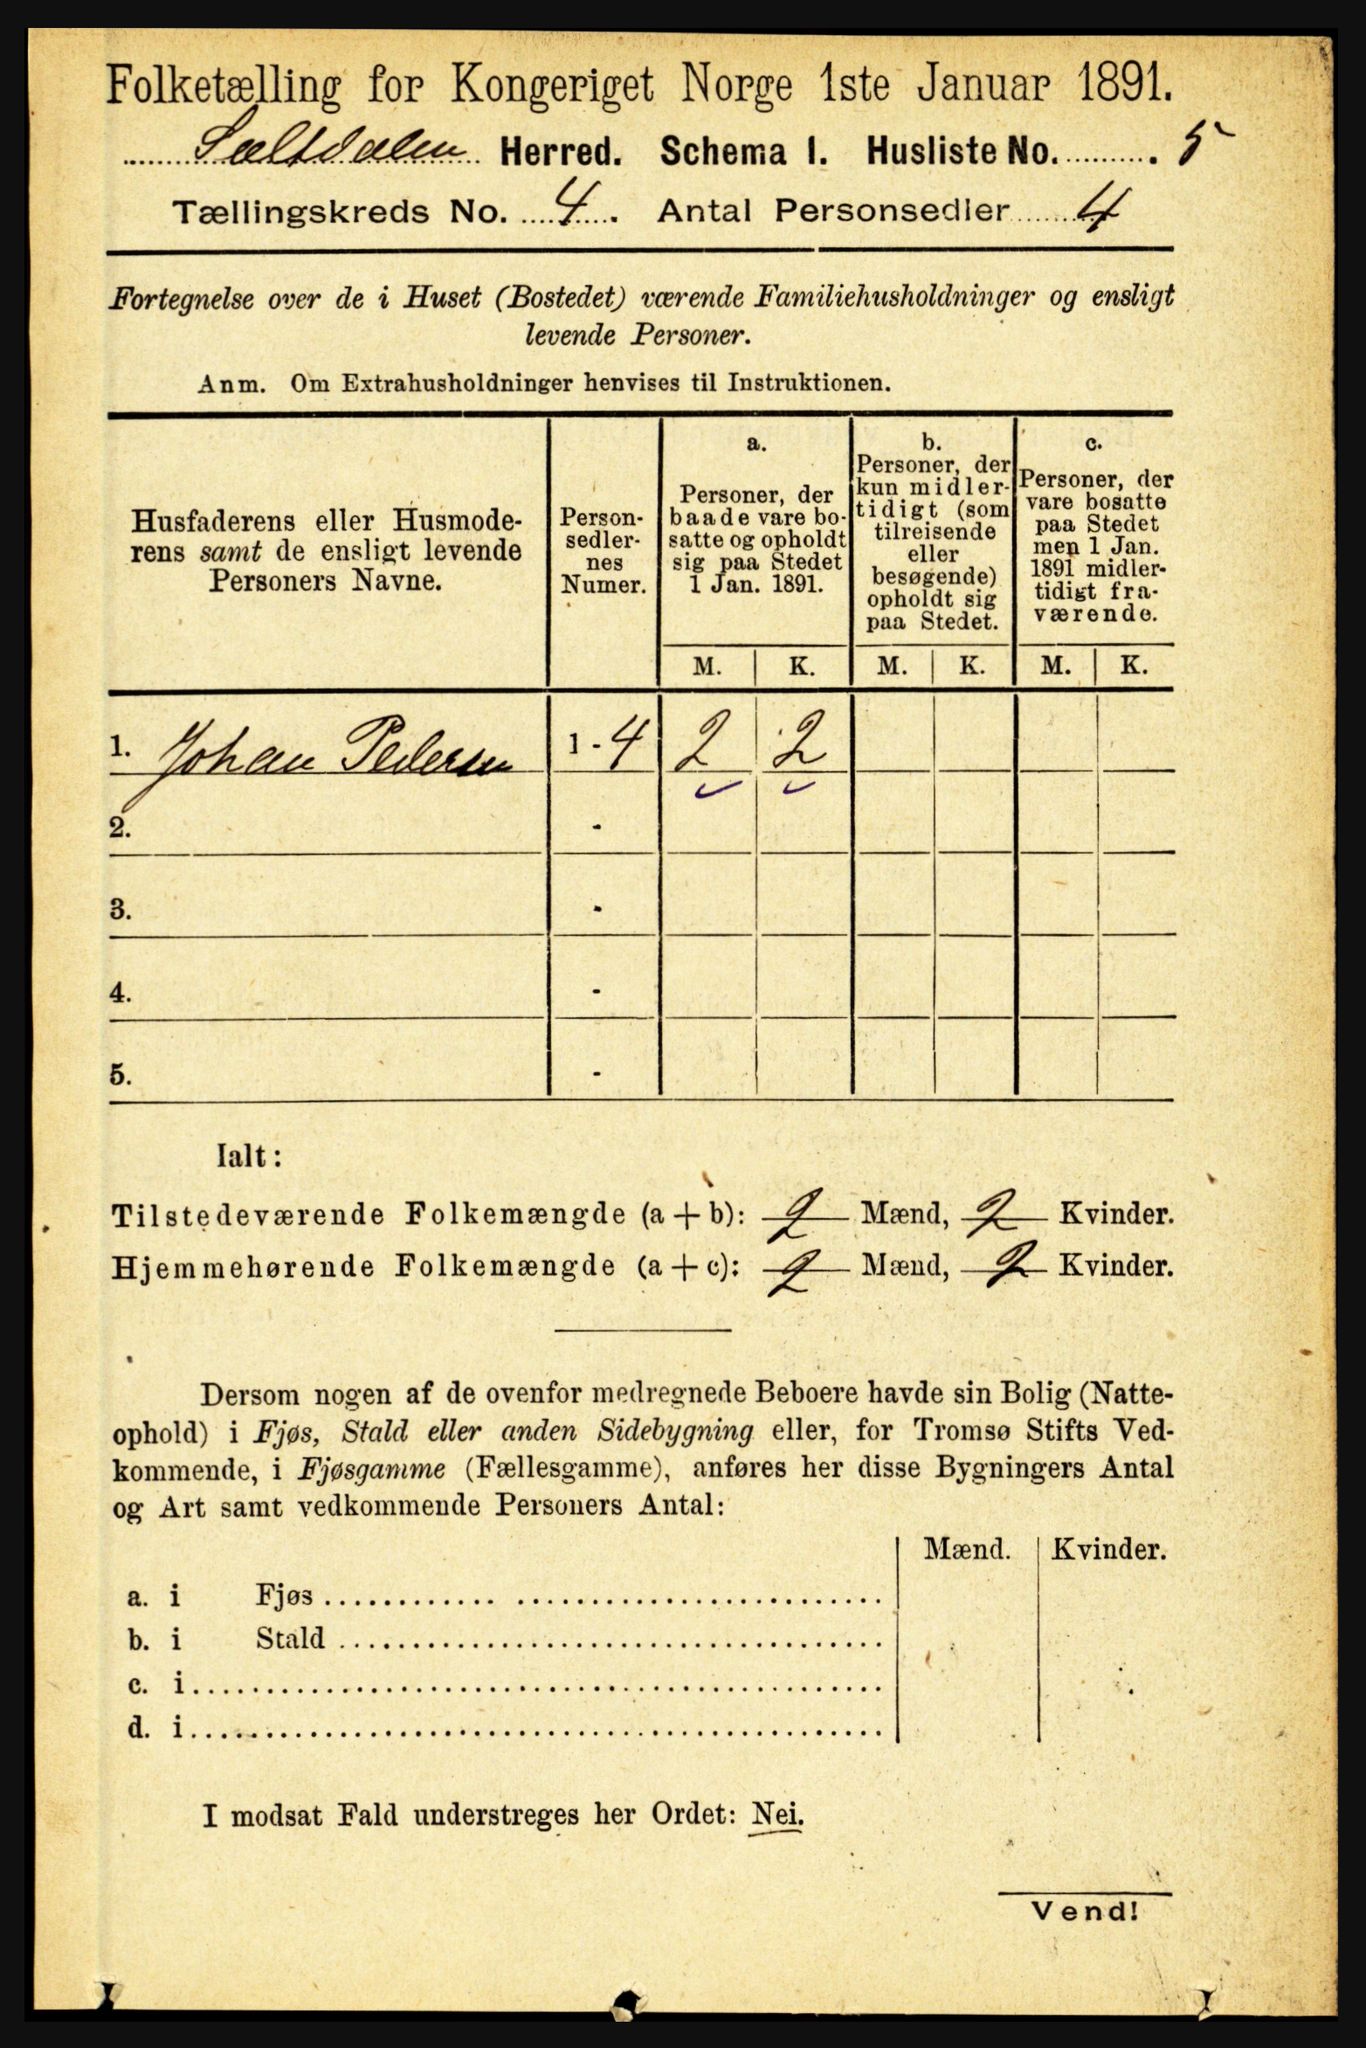 Folketælling for Kongeriget Norge 1ste Januar 1891.
Saltdalen Herred. Schema 1. Husliste No. 5
Tællingskreds No. 4. Antal Personsedler 4
Fortegnelse over de i Huset (Bostedet) værende Familiehusholdninger og ensligt
levende Personer.
Anm. Om Extrahusholdninger henvises til Instruktionen.
Husfaderens eller Husmode-
rens samt de ensligt levende
Personers Navne.
Person-
sedler-
nes
Numer.
a.
Personer, der
baade vare bo-
satte og opholdt
sig paa Stedet
1 Jan. 1891.
b.
Personer, der
kun midler-
tidigt (som
tilreisende
eller
besøgende)
opholdt sig
paa Stedet.
c.
Personer, der
vare bosatte
paa Stedet
men 1 Jan.
1891 midler-
tidigt fra-
værende.
M. K. M. K. M. K.
1. Johan Pedersen 1 - 4 2 2
2. -
3. -
4. -
5. -
Ialt:
Tilstedeværende Folkemængde (a + b): 2 Mænd, 2 Kvinder.
Hjemmehørende Folkemængde (a + c): 2 Mænd, 2 Kvinder.
Dersom nogen af de ovenfor medregnede Beboere havde sin Bolig (Natte-
ophold) i Fjøs, Stald eller anden Sidebygning eller, for Tromsø Stifts Ved-
kommende, i Fjøsgamme (Fællesgamme), anføres her disse Bygningers Antal
og Art samt vedkommende Personers Antal:
Mænd. Kvinder.
a. i Fjøs
b. i Stald
c. i
d. i
I modsat Fald understreges her Ordet: Nei.
Vend!